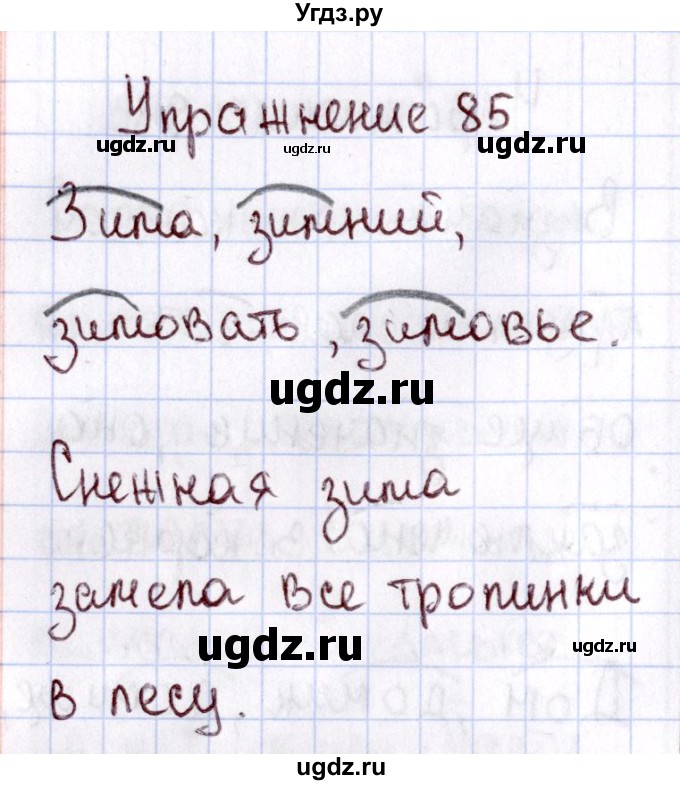 Угдз.ру
Упражнение 85
ugdz.ru ugdz.ru ugdz.ru
Зима, зимний,
зимовать, зимовье.
ugdz.ru
Снежная зима
замела все тропинки
ugdz.ru ugdz.ru
в лесу.
ugdz.ru